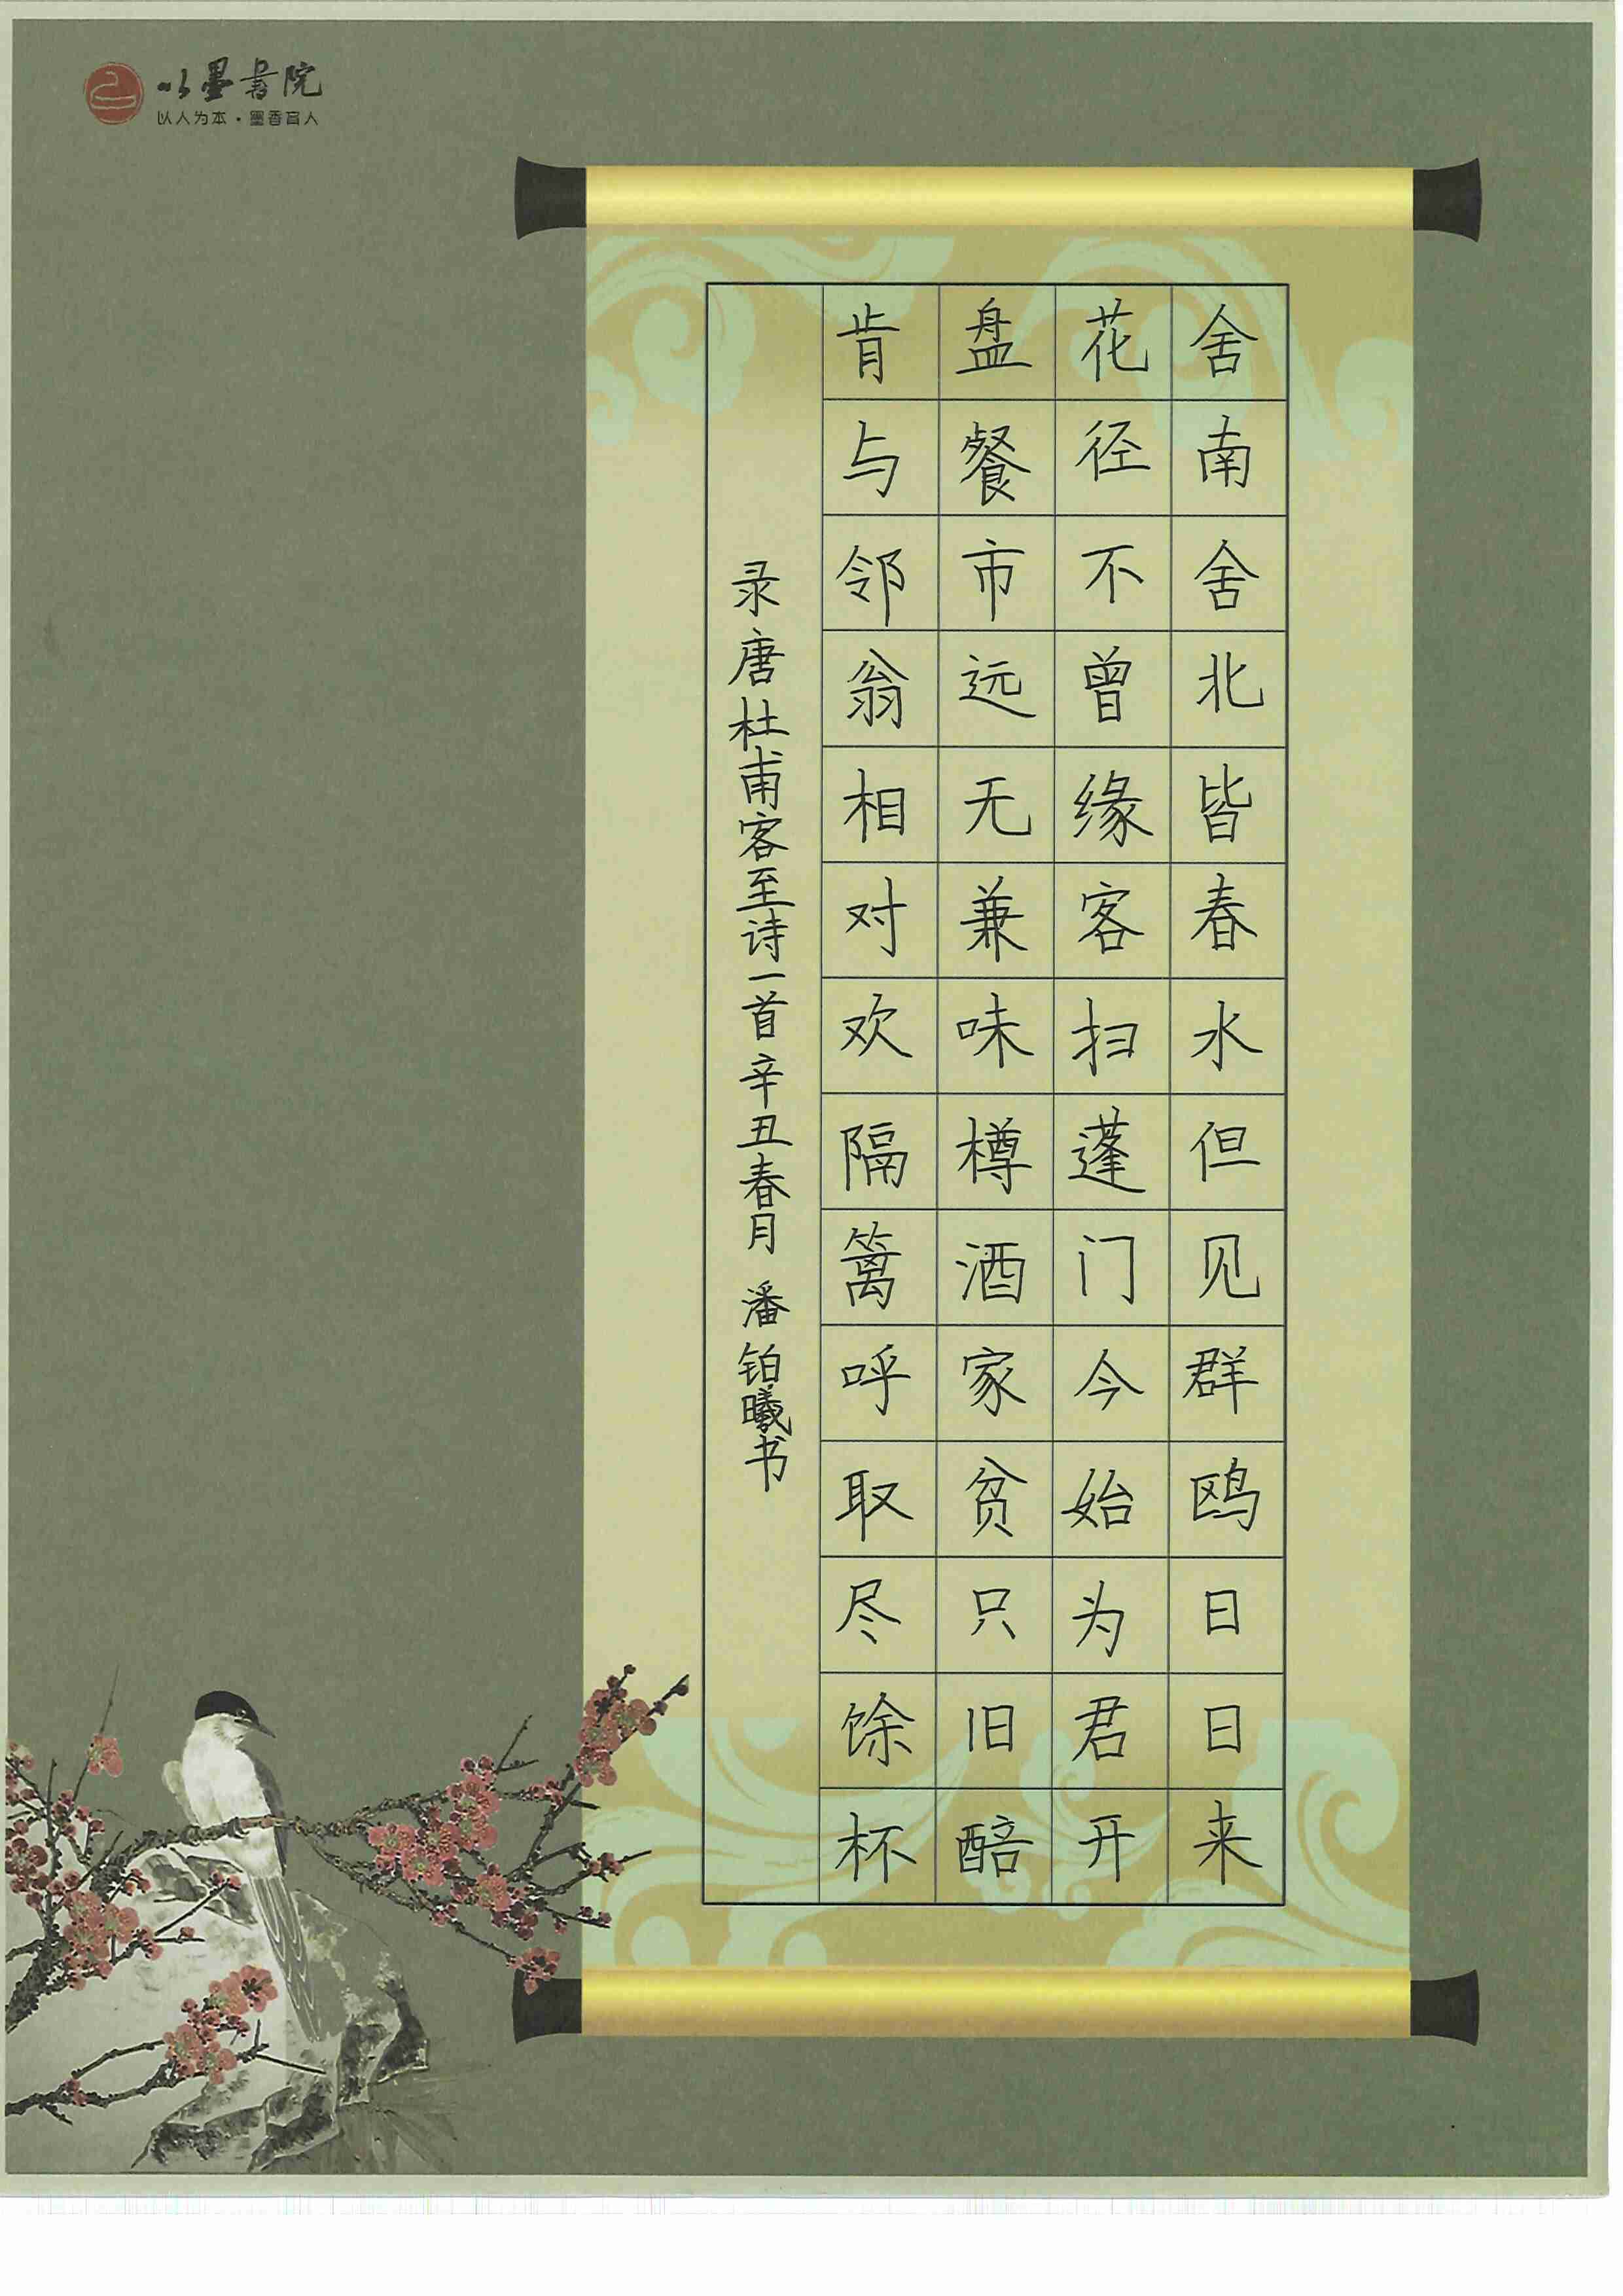 以墨书院
以人为本·墨香育人
舍南舍北皆春水但见群鸥日日来
花径不曾缘客扫蓬门今始为君开
盘餐市远无兼味樽酒家贫只旧醅
肯与邻翁相对欢隔篱呼取尽馀杯
录唐杜甫客至诗一首辛丑春月 潘铂曦书